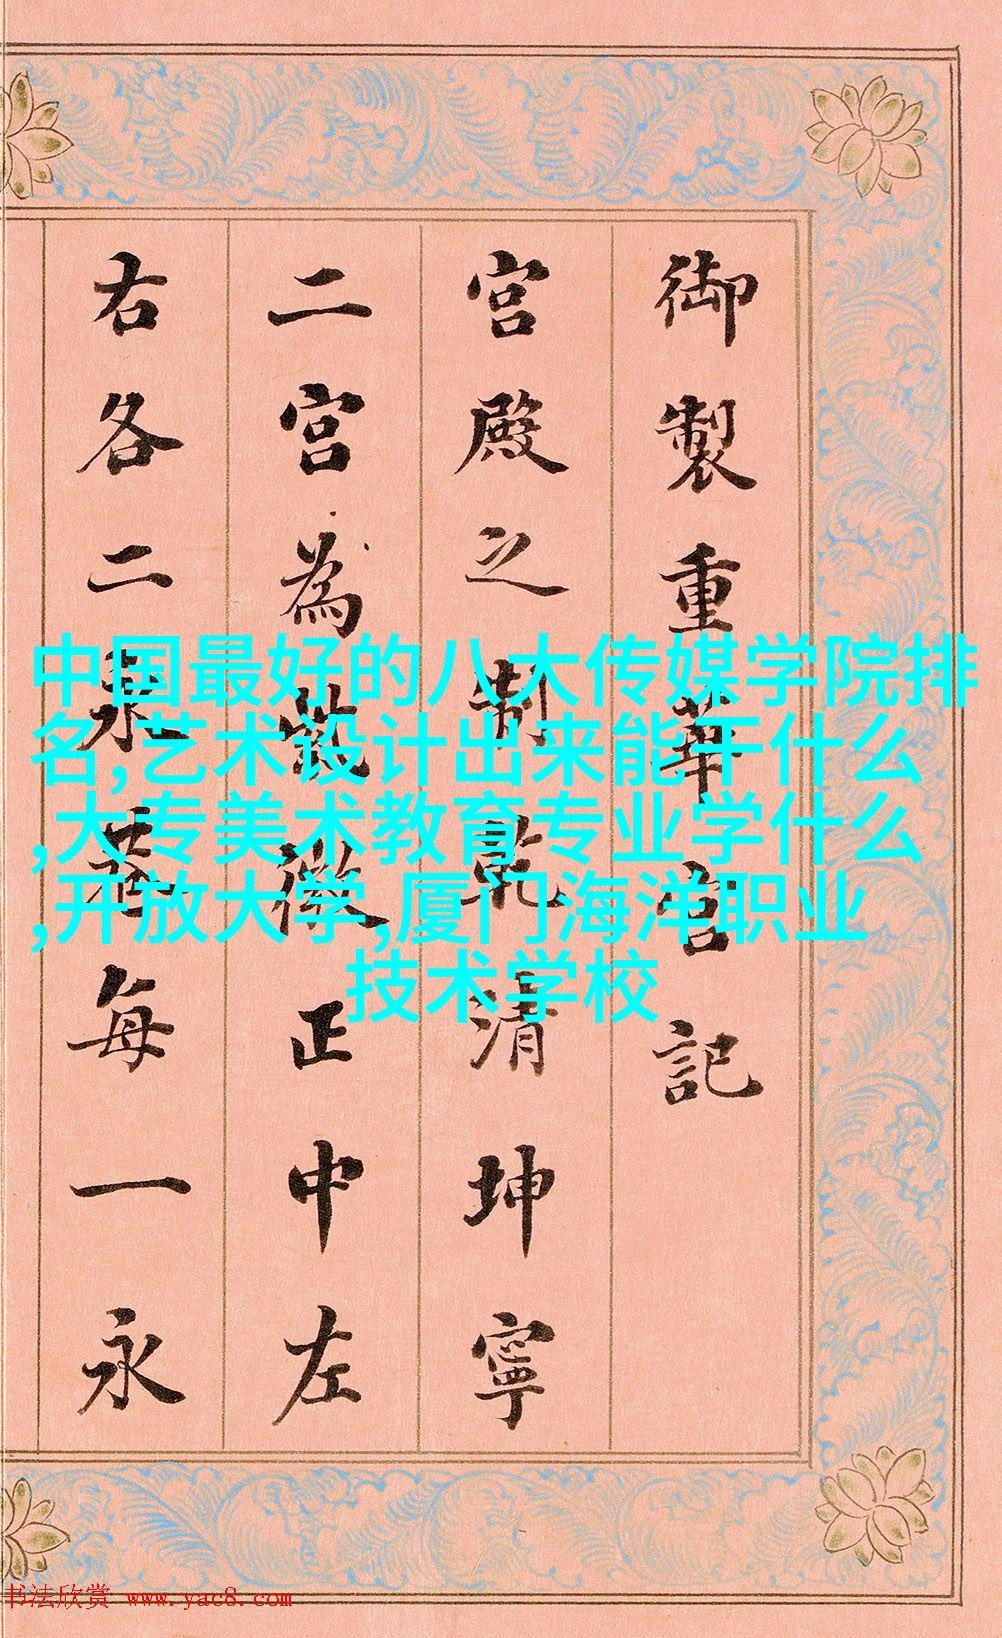 御製重華宮記
宮殿之制乾清坤寧
二宮為紫微正中左
右各二永巷每一永
中国最好的八大传媒学院排
名,艺术设计出来能干什么
,大专美术教育专业学什么
,开放大学,厦门海洋职业
技术学校
书法欣赏 www.yac8.com